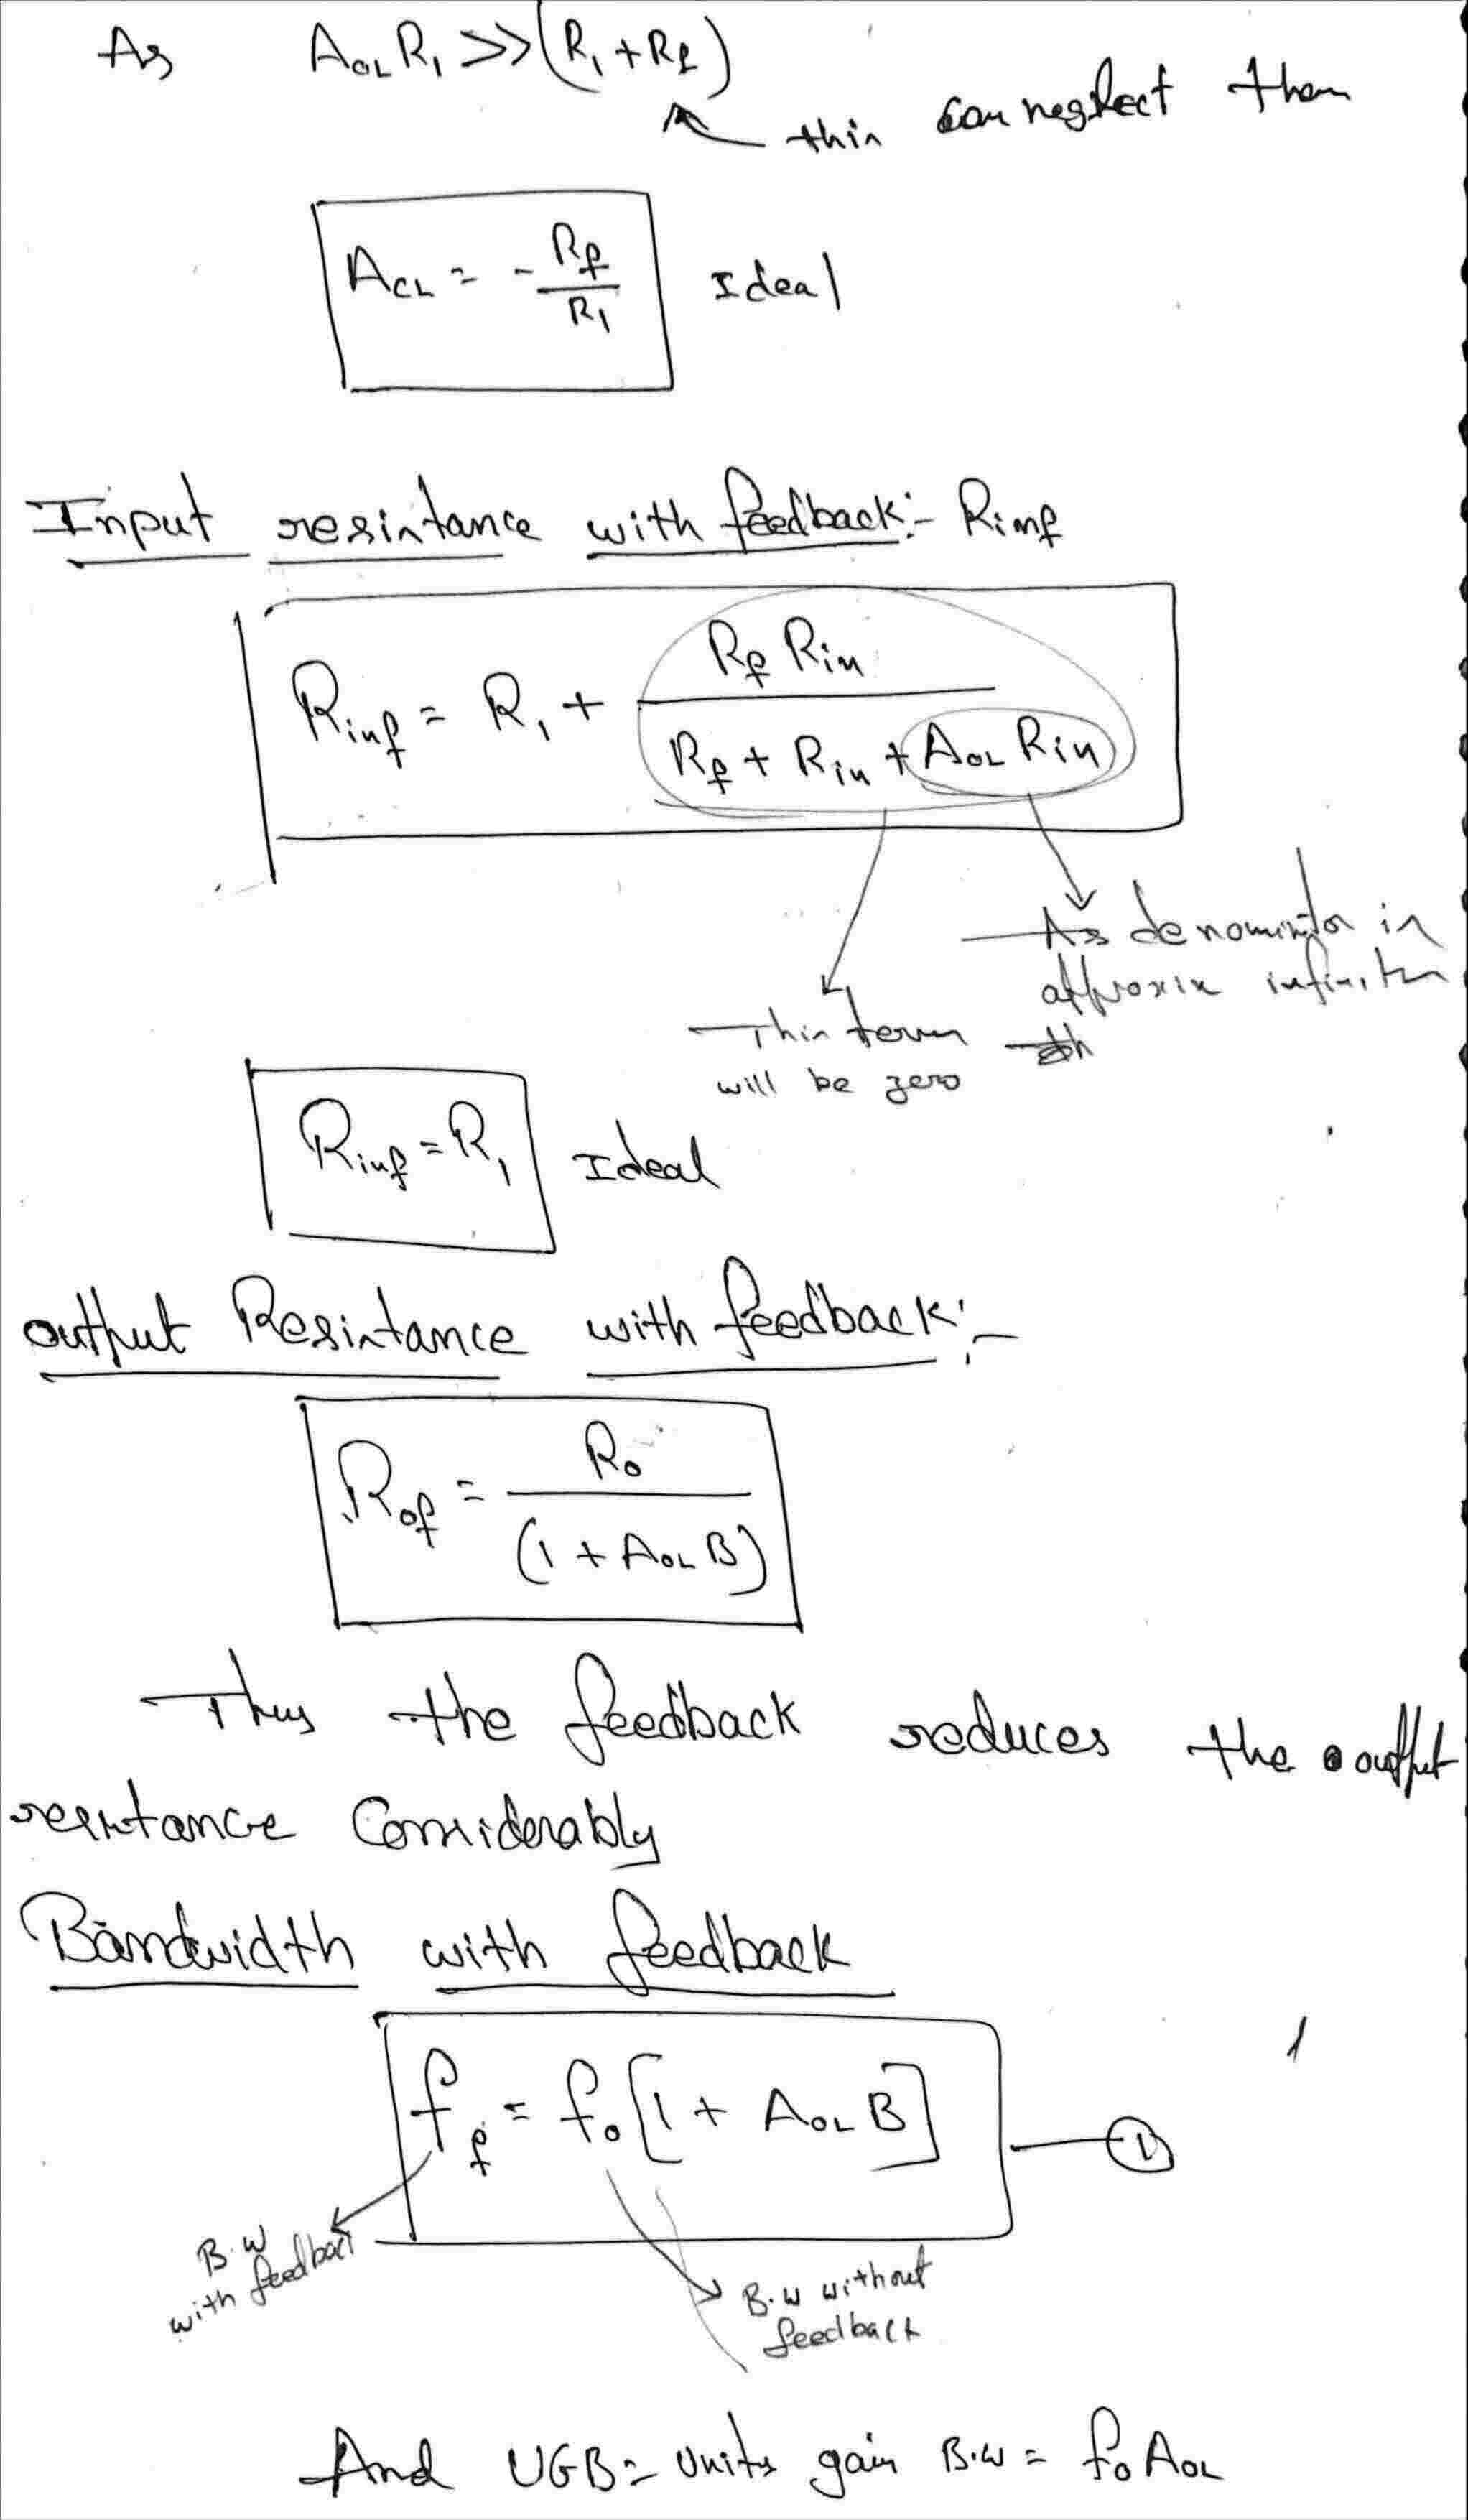 As A_OL R_1 >> (R_1 + R_f)
this can neglect then
A_CL = - R_f / R_1 Ideal
Input resistance with feedback :- R_inf
R_inf = R_1 + R_f R_in / (R_f + R_in + A_OL R_in)
As denominator is
approxix infinite
This term
will be zero
R_inf = R_1 Ideal
output Resistance with feedback :-
R_of = R_o / (1 + A_OL B)
Thus the feedback reduces the output
resistance Considerably
Bandwidth with feedback
f_f = f_o [1 + A_OL B] — 1
B.W
with feedback
B.W without
feedback
And UGB = Unity gain B.W = f_o A_OL